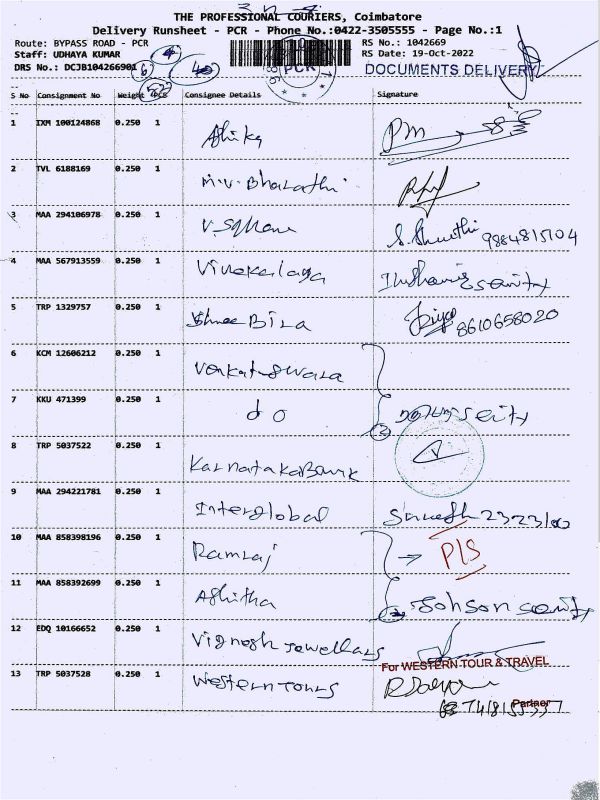 THE PROFESSIONAL COURIERS, Coimbatore
Delivery Runsheet - PCR - Phone No.:0422-3505555 - Page No.:1
Route: BYPASS ROAD - PCR
RS No.: 1042669
Staff: UDHAYA KUMAR
RS Date: 19-Oct-2022
DRS No.: DCJB104266901
PCR
DOCUMENTS DELIVERY
S No Consignment No Weight PCS Consignee Details Signature
1 IXM 100124868 0.250 1 Ashika
2 TVL 6188169 0.250 1 M.V. Bharathi
3 MAA 294106978 0.250 1 9884815104
4 MAA 567913559 0.250 1 Vivekalaya
5 TRP 1329757 0.250 1 Shree Bira 8610658020
6 KCM 12606212 0.250 1
7 KKU 471399 0.250 1 do
8 TRP 5037522 0.250 1 Karnataka Bank
9 MAA 294221781 0.250 1 Interglobal
10 MAA 858398196 0.250 1 Ramraj
11 MAA 858392699 0.250 1 Ashitha
12 EDQ 10166652 0.250 1 Vignesh Jewellars
For WESTERN TOUR & TRAVEL
13 TRP 5037528 0.250 1 Western Tours
Partner